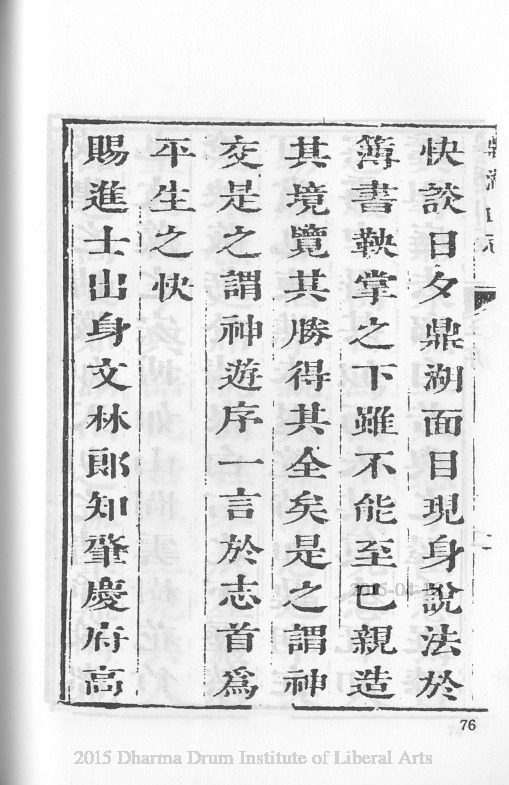 快談日夕鼎湖面目現身說法於
簿書鞅掌之下雖不能至已親造
其境覽其勝得其全矣是之謂神
交是之謂神遊序一言於志首爲
平生之快
賜進士出身文林郎知肇慶府高
76
2015 Dharma Drum Institute of Liberal Arts